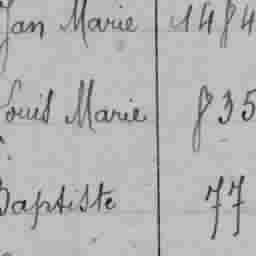 Jan Marie 1484
Louis Marie 835
Baptiste 77